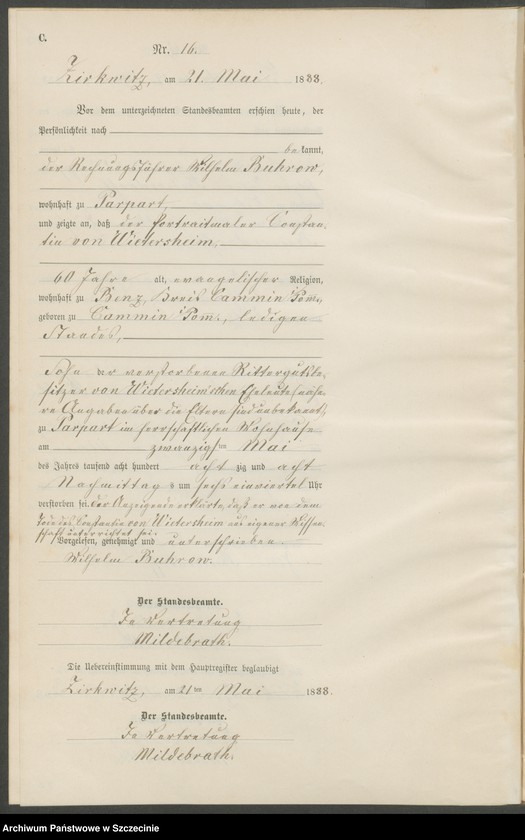 C.
Nr. 16.
Zirkwitz, am 21. Mai 1888.
Vor dem unterzeichneten Standesbeamten erschien heute, der
Persönlichkeit nach
be kannt,
der Rechnungsführer Wilhelm Buhrow,
wohnhaft zu Parpart,
und zeigte an, daß der Portraitmaler Constan-
tin von Wietersheim,
60 Jahre alt, evangelischer Religion,
wohnhaft zu Benz, Kreis Cammin Pom.,
geboren zu Cammin Pom:, ledigen
Standes,
Sohn der verstorbenen Rittergutsbe-
sitzer von Wietersheim'schen Eheleute nähe-
re Angaben über die Eltern sind unbekannt,
zu Parpart im herrschaftlichen Wohnhause
am zwanzigsten Mai
des Jahres tausend acht hundert acht zig und acht
Nachmittag s um sechs einviertel Uhr
verstorben sei. der Anzeigende erklärte, daß er von dem
Tode des Constantin von Wietersheim aus eigener Wissen-
schaft unterrichtet sei.
Vorgelesen, genehmigt und unterschrieben.
Wilhelm Buhrow.
Der Standesbeamte.
In Vertretung
Mildebrath.
Die Uebereinstimmung mit dem Hauptregister beglaubigt
Zirkwitz, am 21ten Mai 1888.
Der Standesbeamte.
In Vertretung
Mildebrath.
Archiwum Państwowe w Szczecinie